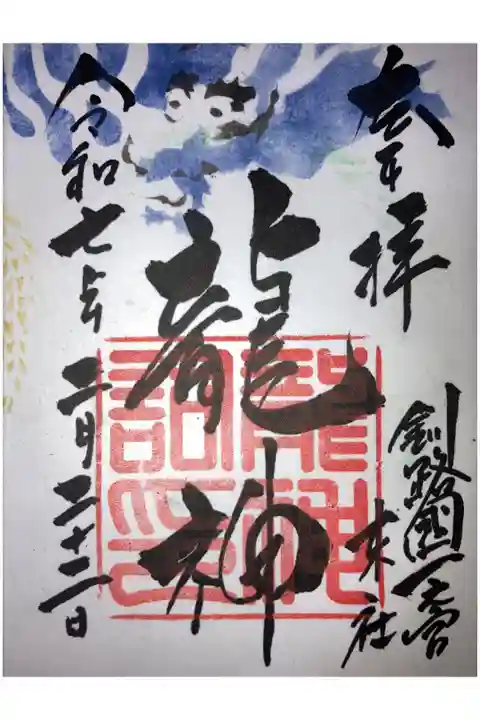 奉拝
釧路國一之宮
末社
龍神
令和七年二月二十二日